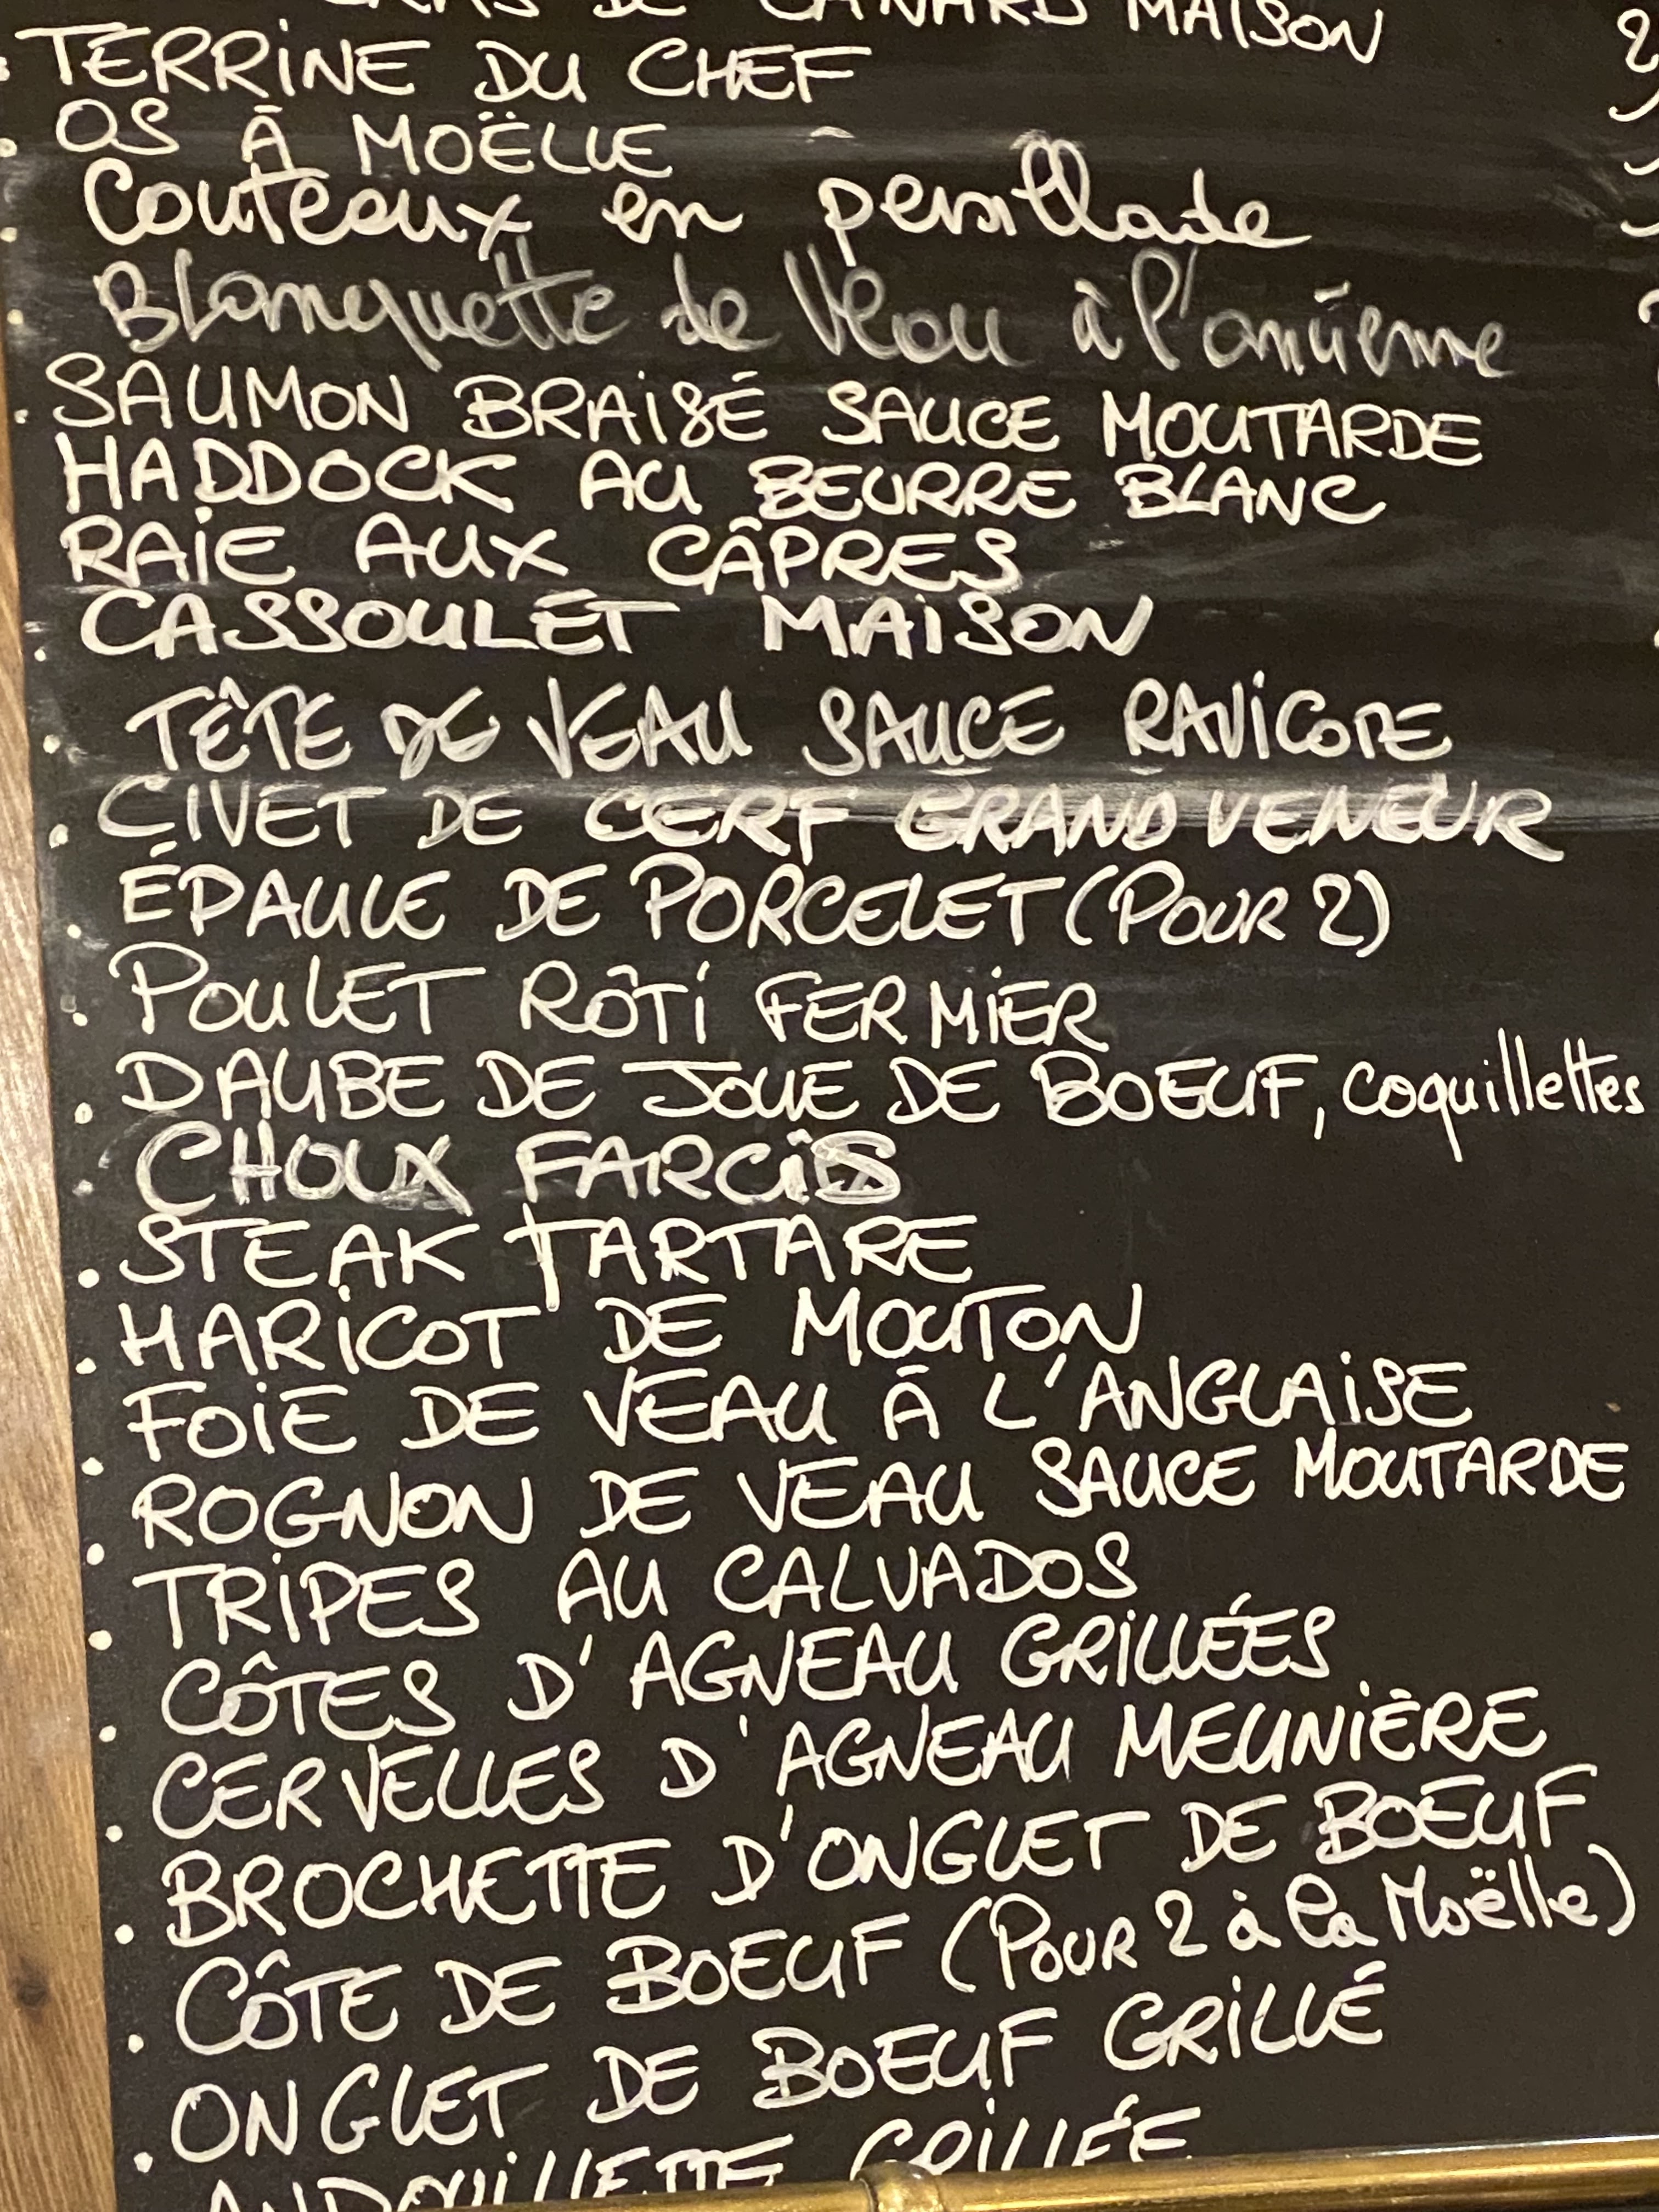 DE CANARD MAISON
TERRINE DU CHEF
OS À MOËLLE
Couteaux en persillade
Blanquette de Veau à l'ancienne
SAUMON BRAISÉ SAUCE MOUTARDE
HADDOCK AU BEURRE BLANC
RAIE AUX CÂPRES
CASSOULET MAISON
TÊTE DE VEAU SAUCE RAVIGOTE
CIVET DE CERF GRAND VENEUR
ÉPAULE DE PORCELET (POUR 2)
POULET RÔTI FERMIER
DAUBE DE JOUE DE BOEUF, coquillettes
CHOUX FARCIS
STEAK TARTARE
HARICOT DE MOUTON
FOIE DE VEAU À L'ANGLAISE
ROGNON DE VEAU SAUCE MOUTARDE
TRIPES AU CALVADOS
CÔTES D'AGNEAU GRILLÉES
CERVELLES D'AGNEAU MEUNIÈRE
BROCHETTE D'ONGLET DE BOEUF
CÔTE DE BOEUF (POUR 2 à la Moëlle)
ONGLET DE BOEUF GRILLÉ
ANDOUILLETTE GRILLÉE